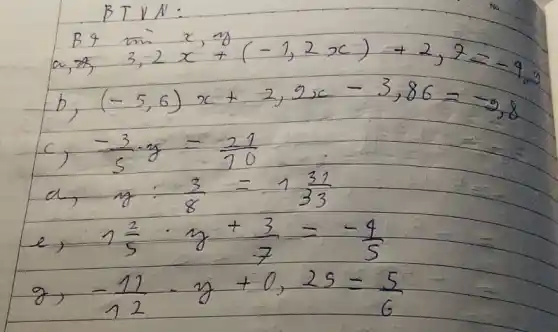 BTVN:
B4 tìm x, y
a, 3,2 x + (-1,2 x) + 2,7 = -4,9
b, (-5,6) x + 2,9 x - 3,86 = -9,8
c, -3/5 . y = 21/10
d, y : 3/8 = 1 31/33
e, 1 2/5 . y + 3/7 = -4/5
g, -11/12 . y + 0,25 = 5/6